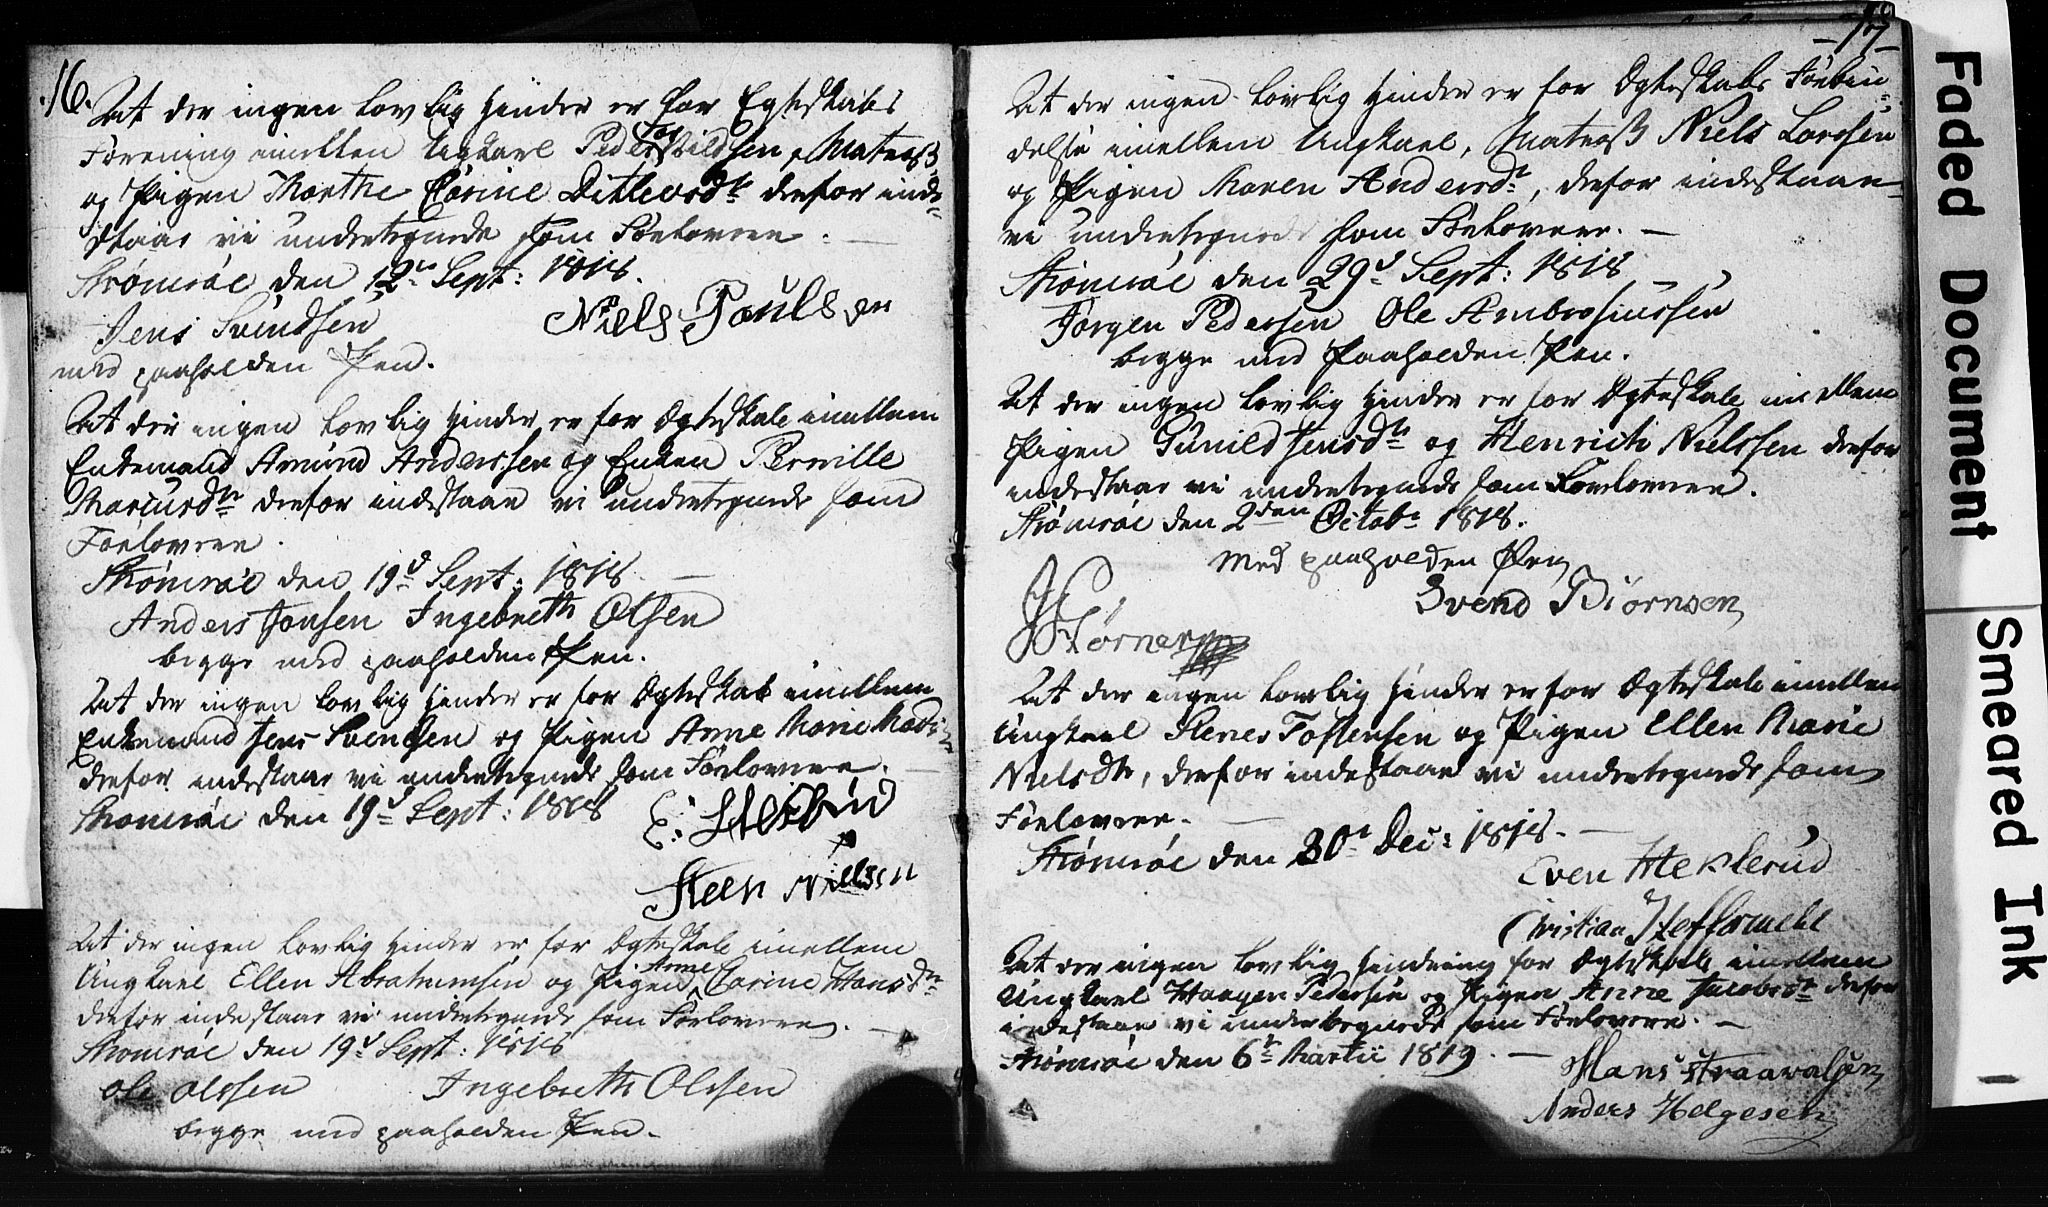 16.
At der ingen lovlig Hinder er for Egteskabs
Forening imellem Ungkarl Peder Torkildsen, Matros
og Pigen Marthe Carine Ditlevsdtr derfor inde-
staar vi undertegnede som Forlovere. —
Strømsøe den 12te Sept: 1818.
Jens Svendsen Niels Poulsen
med paaholden Pen.
At der ingen lovlig Hinder er for Ægteskab imellem
Enkemand Amund Anderssen og Enken Pernille
Marcusdtr derfor indestaar vi undertegnede som
Forlovere.
Strømsøe den 19d Sept: 1818. —
Anders Jonsen Ingebreth Olsen
begge med paaholden Pen.
At der ingen lovlig Hinder er for Ægteskab imellem
Enkemand Jens Svendsen og Pigen Anne Marie
derfor indestaar vi undertegnede som Forlovere. —
Strømsøe den 19d Sept: 1818
Steen Nielssen
At der ingen lovlig Hinder er for Ægteskab imellem
Ungkarl Ellen Abrahamsen og Pigen Anne Carine Hansdtr
derfor indestaar vi undertegnede som Forlovere. —
Strømsøe den 19d Sept: 1818
Ole Olssen Ingebreth Olssen
begge med paaholden Pen.
— 17 —
At der ingen lovlig Hinder er for Ægteskabs Forbin-
delse imellem Ungkarl, Matros Niels Larssen
og Pigen Maren Andersdtr, derfor indestaar
vi undertegnede som Forlovere. —
Strømsøe den 29d Sept: 1818
Jørgen Pedersen Ole Ambrosiussen
begge med Paaholden Pen.
At der ingen lovlig Hinder er for Ægteskab imellem
Pigen Gunild Jensdtr og Henrich Nielssen derfor
indestaar vi undertegnede som Forlovere.
Strømsøe den 2den Octobr 1818.
med paaholden Pen
Svend Biørnsen
At der ingen lovlig Hinder er for Ægteskab imellem
Ungkarl Tostensen og Pigen Ellen Marie
Nielsdtr, derfor indestaar vi undertegnede som
Forlovere. —
Strømsøe den 30t Dec: 1818. —
Even
Christian
At der ingen lovlig Hindring for Ægteskab imellem
Ungkarl Haagen Pedersen og Pigen Anne Jacobsdtr derfor
indestaar vi undertegnede som Forlovere. —
Strømsøe den 6te Martii 1819. —
Hans
Anders Helgesen
Faded Document
Smeared Ink